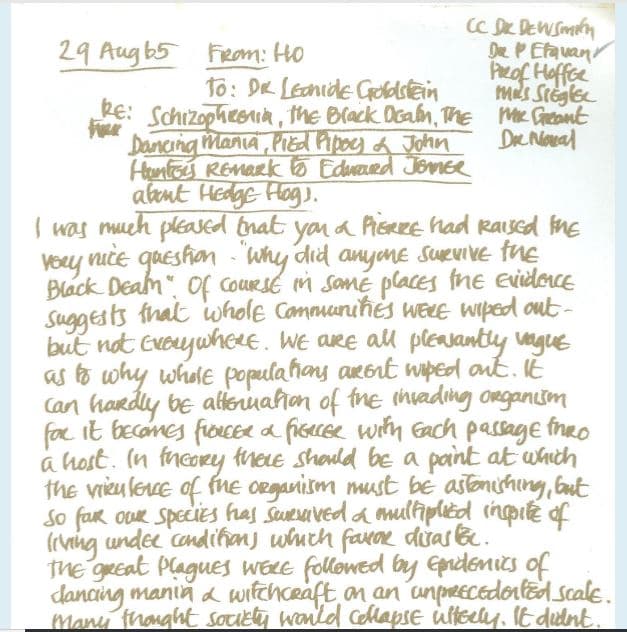 CC DR DEWSmith
29 Aug 65 From: HO
DR P Etevan
Prof Hoffer
To: DR Leonide Goldstein
Mrs Siegler
RE: Schizophrenia, the Black Death, The
Mr Grant
Dancing Mania, Pied Pipers & John
DR Naval
Hunter's Remark to Edward Jenner
about Hedge Hogs.
I was much pleased that you & PIERRE had raised the
very nice question - "why did anyone survive the
Black Death". Of course in some places the evidence
suggests that whole communities were wiped out -
but not everywhere. We are all pleasantly vague
as to why whole populations arent wiped out. It
can hardly be attenuation of the invading organism
for it becomes fiercer & fiercer with each passage thro
a host. In theory there should be a point at which
the virulence of the organism must be astonishing, but
so far our species has survived & multiplied inspite of
living under conditions which favor disaster.
The great plagues were followed by epidemics of
dancing mania & witchcraft on an unprecedented scale.
Many thought society would collapse utterly. It didnt.